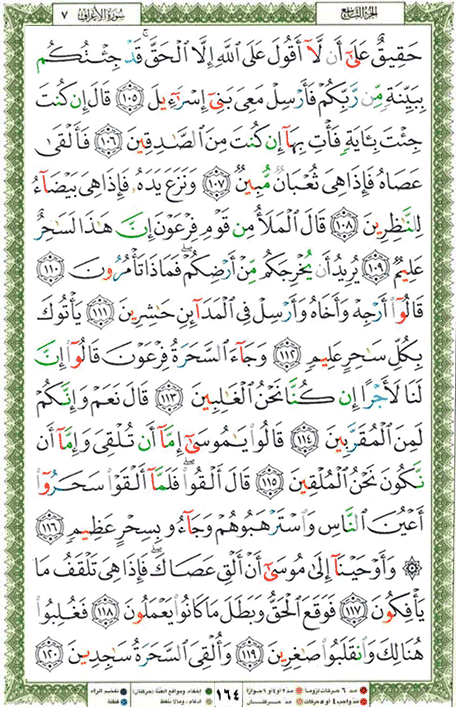 الجزء التاسع سورة الأعراف ٧
حَقِيقٌ عَلَىٰٓ أَن لَّآ أَقُولَ عَلَى ٱللَّهِ إِلَّا ٱلۡحَقَّۚ قَدۡ جِئۡتُكُم
بِبَيِّنَةٖ مِّن رَّبِّكُمۡ فَأَرۡسِلۡ مَعِيَ بَنِيٓ إِسۡرَٰٓءِيلَ ١٠٥ قَالَ إِن كُنتَ
جِئۡتَ بِـَٔايَةٖ فَأۡتِ بِهَآ إِن كُنتَ مِنَ ٱلصَّٰدِقِينَ ١٠٦ فَأَلۡقَىٰ
عَصَاهُ فَإِذَا هِيَ ثُعۡبَانٞ مُّبِينٞ ١٠٧ وَنَزَعَ يَدَهُۥ فَإِذَا هِيَ بَيۡضَآءُ
لِلنَّٰظِرِينَ ١٠٨ قَالَ ٱلۡمَلَأُ مِن قَوۡمِ فِرۡعَوۡنَ إِنَّ هَٰذَا لَسَٰحِرٌ
عَلِيمٞ ١٠٩ يُرِيدُ أَن يُخۡرِجَكُم مِّنۡ أَرۡضِكُمۡۖ فَمَاذَا تَأۡمُرُونَ ١١٠
قَالُوٓاْ أَرۡجِهۡ وَأَخَاهُ وَأَرۡسِلۡ فِي ٱلۡمَدَآئِنِ حَٰشِرِينَ ١١١ يَأۡتُوكَ
بِكُلِّ سَٰحِرٍ عَلِيمٖ ١١٢ وَجَآءَ ٱلسَّحَرَةُ فِرۡعَوۡنَ قَالُوٓاْ إِنَّ
لَنَا لَأَجۡرًا إِن كُنَّا نَحۡنُ ٱلۡغَٰلِبِينَ ١١٣ قَالَ نَعَمۡ وَإِنَّكُمۡ
لَمِنَ ٱلۡمُقَرَّبِينَ ١١٤ قَالُواْ يَٰمُوسَىٰٓ إِمَّآ أَن تُلۡقِيَ وَإِمَّآ أَن
نَّكُونَ نَحۡنُ ٱلۡمُلۡقِينَ ١١٥ قَالَ أَلۡقُواْۖ فَلَمَّآ أَلۡقَوۡاْ سَحَرُوٓاْ
أَعۡيُنَ ٱلنَّاسِ وَٱسۡتَرۡهَبُوهُمۡ وَجَآءُو بِسِحۡرٍ عَظِيمٖ ١١٦
۞ وَأَوۡحَيۡنَآ إِلَىٰ مُوسَىٰٓ أَنۡ أَلۡقِ عَصَاكَۖ فَإِذَا هِيَ تَلۡقَفُ مَا
يَأۡفِكُونَ ١١٧ فَوَقَعَ ٱلۡحَقُّ وَبَطَلَ مَا كَانُواْ يَعۡمَلُونَ ١١٨ فَغُلِبُواْ
هُنَالِكَ وَٱنقَلَبُواْ صَٰغِرِينَ ١١٩ وَأُلۡقِيَ ٱلسَّحَرَةُ سَٰجِدِينَ ١٢٠
مد ٦ حركات لزوما مد ٢ أو ٤ أو ٦ جوازا ١٦٤ إخفاء، ومواقع الغنة (حركتان) تفخيم الراء
مد واجب ٤ أو ٥ حركات مد حركتان إدغام، وما لا يلفظ قلقلة